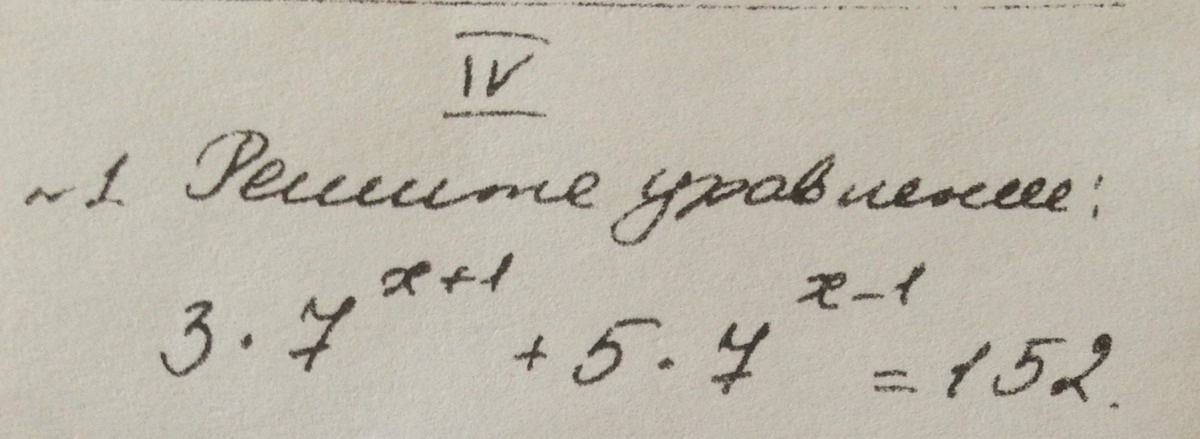 IV
~1. Решите уравнение:
3 · 7^{x+1} + 5 · 7^{x-1} = 152.